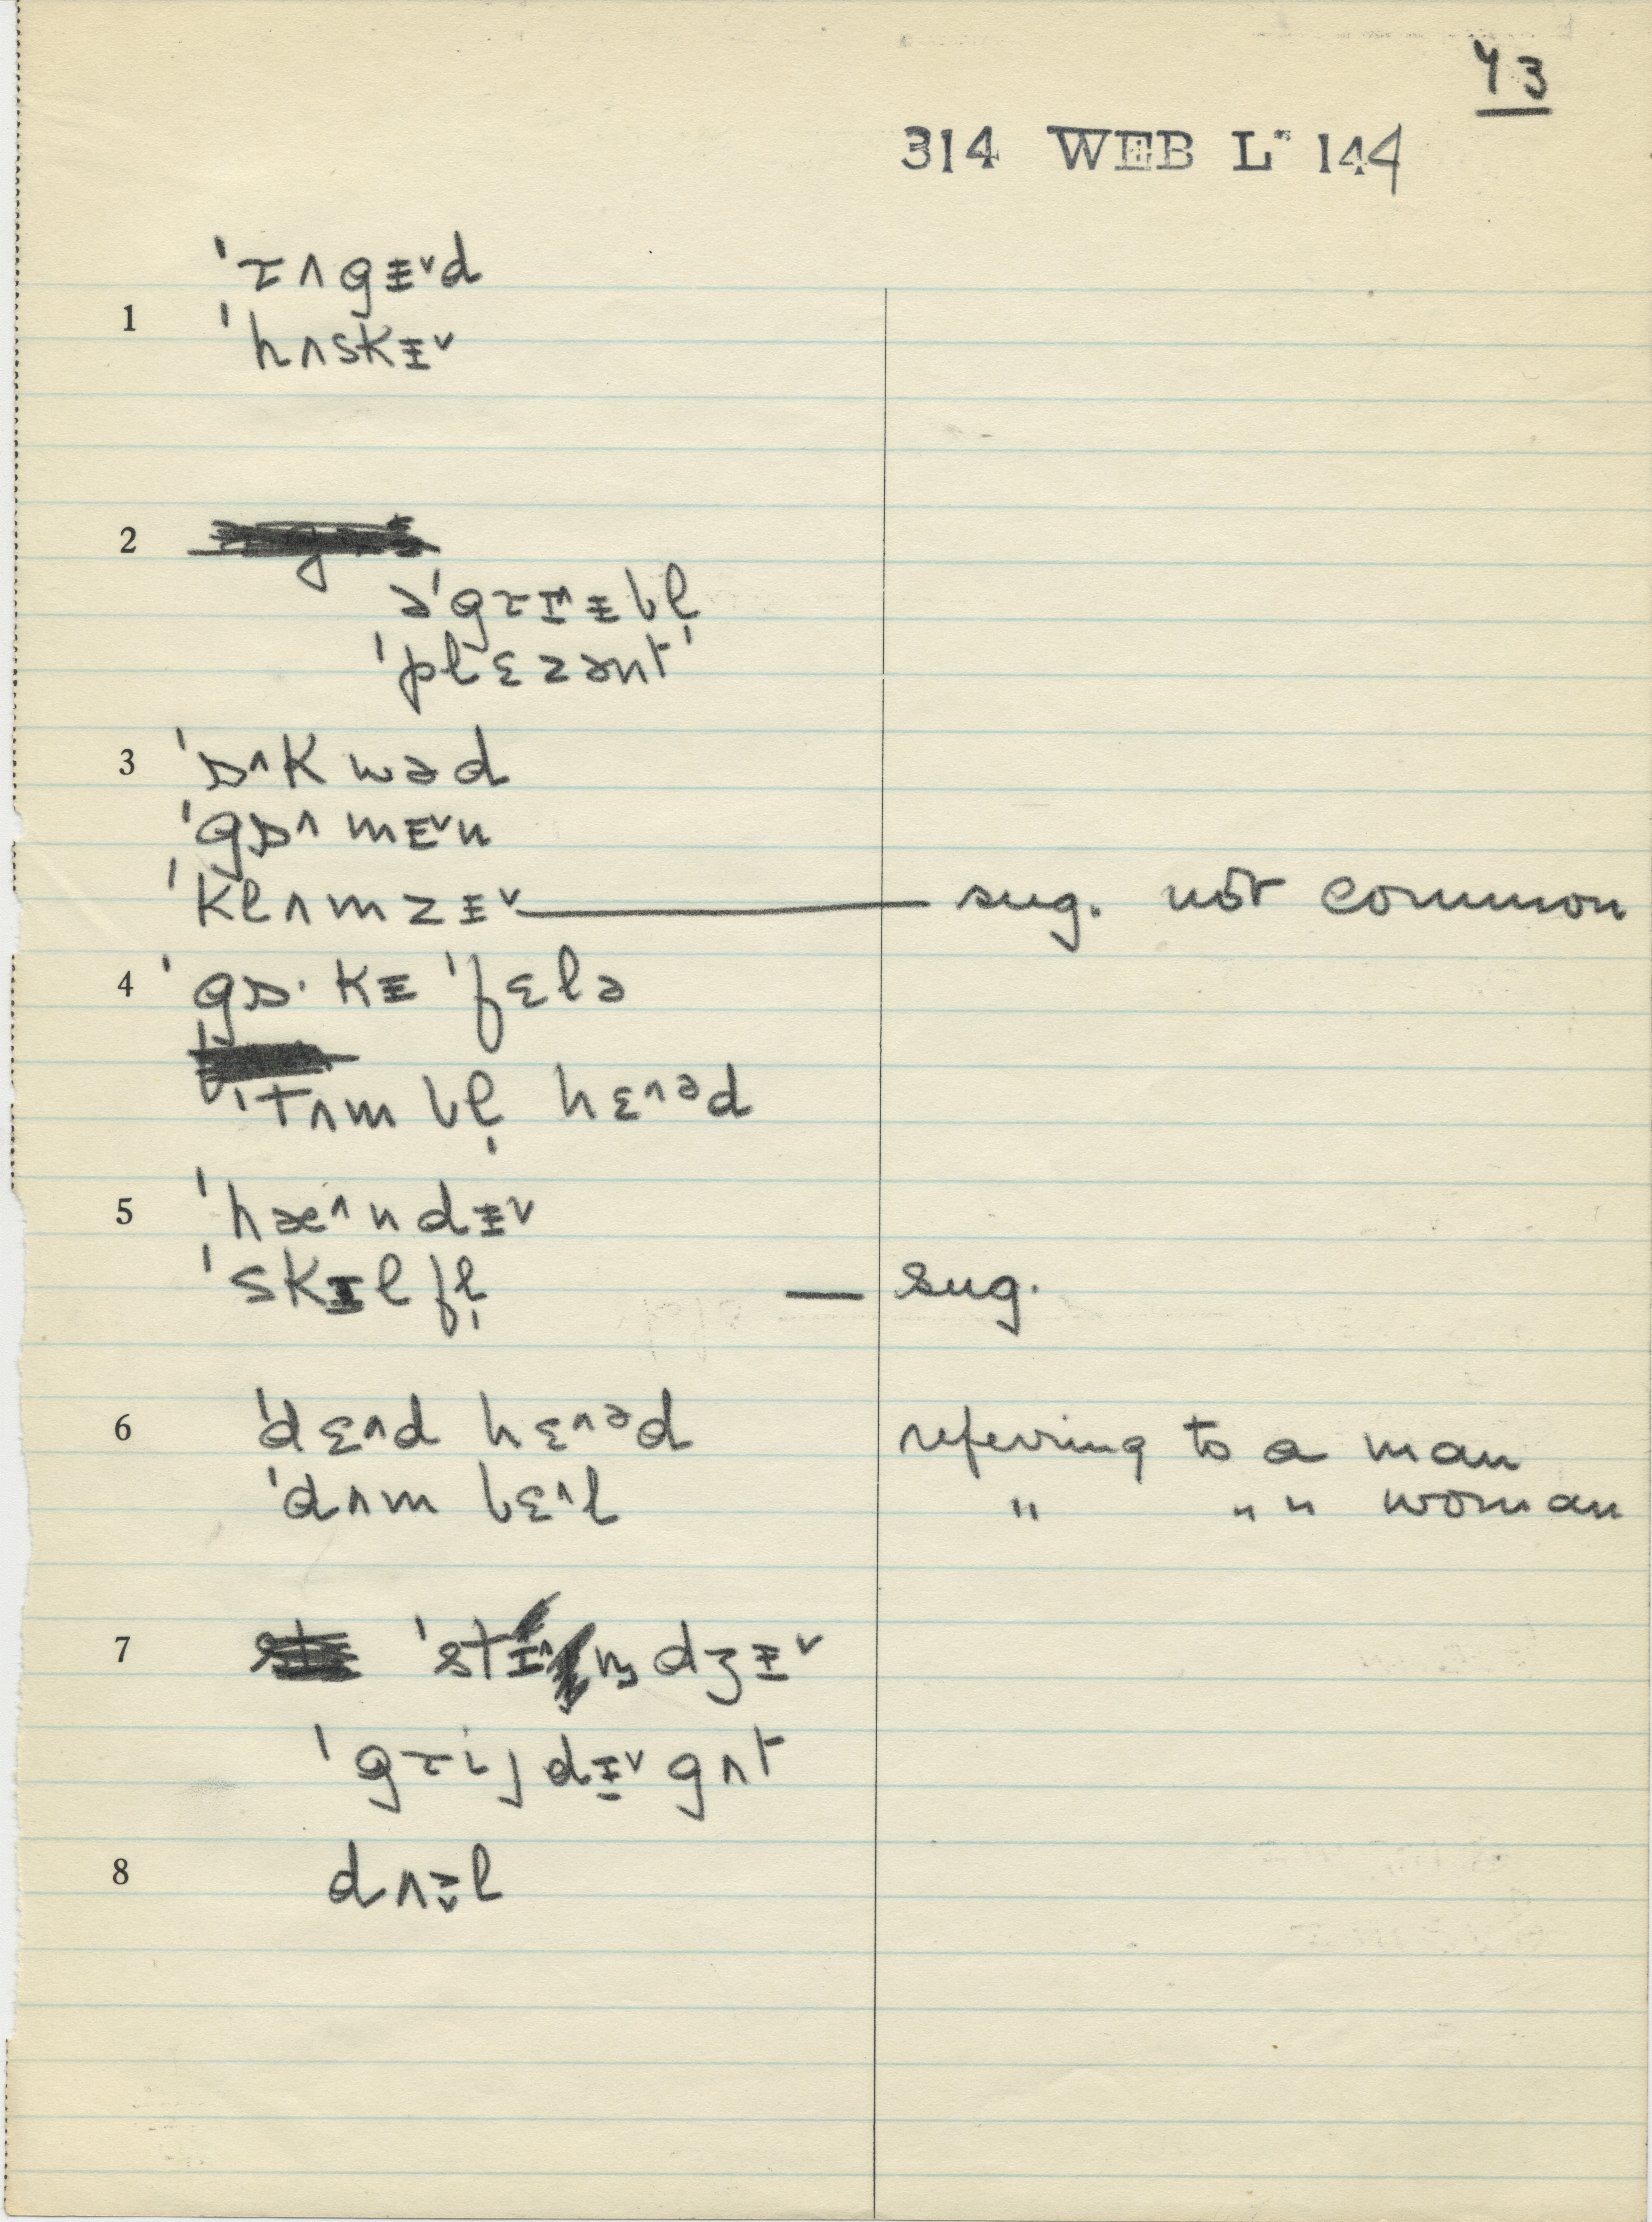 43
314 WEB L" 144
ˈɹʌgɨ˅d
1
ˈhʌskɨ˅
2
əˈgɹɪ^ɨbl̩
ˈplɛzənt'
3 ˈɒ^kwəd
ˈgɒ^mɪ˅n
ˈklʌmzɨ˅ — sug. not common
4 ˈgɒ·kɨ ˈfɛlə
ˈtʌmbl̩ hɛ^əd
5 ˈhæ^ndɨ˅
ˈskɪlfl̩ — sug.
6 ˈdɛ^d hɛ^əd referring to a man
ˈdʌm bɛ^l " " " woman
7 ˈstɪ^ndʒɨ˅
ˈgɹijdɪ˅gʌt
8 dʌɨ̬l